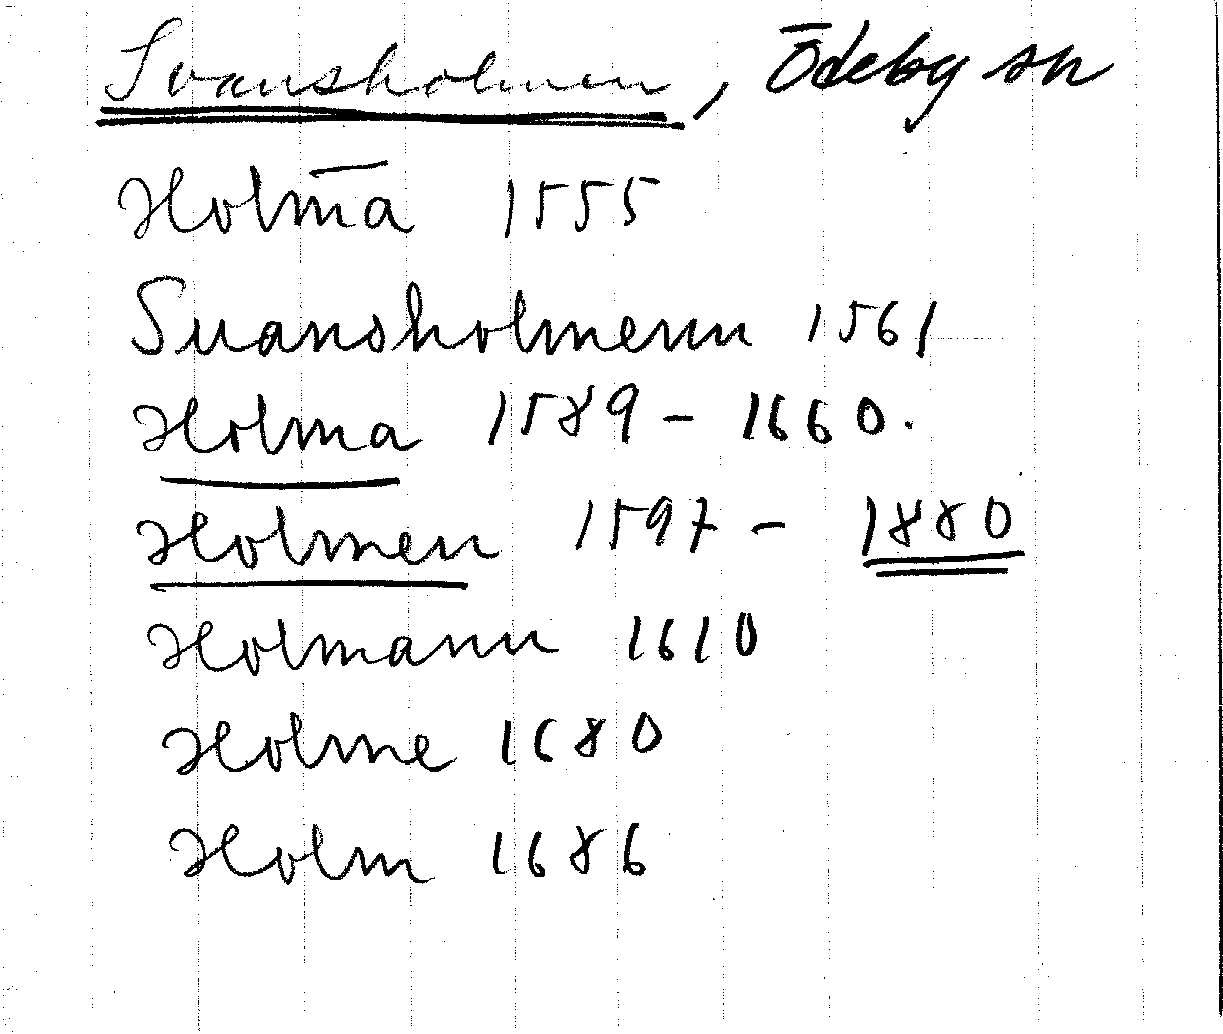 Svansholmen, Ödeby sn
Holm̄a 1555
Suansholmenn 1561
Holma 1589 - 1660.
Holmen 1597 - 1880
Holmann 1610
Holme 1680
Holm 1686